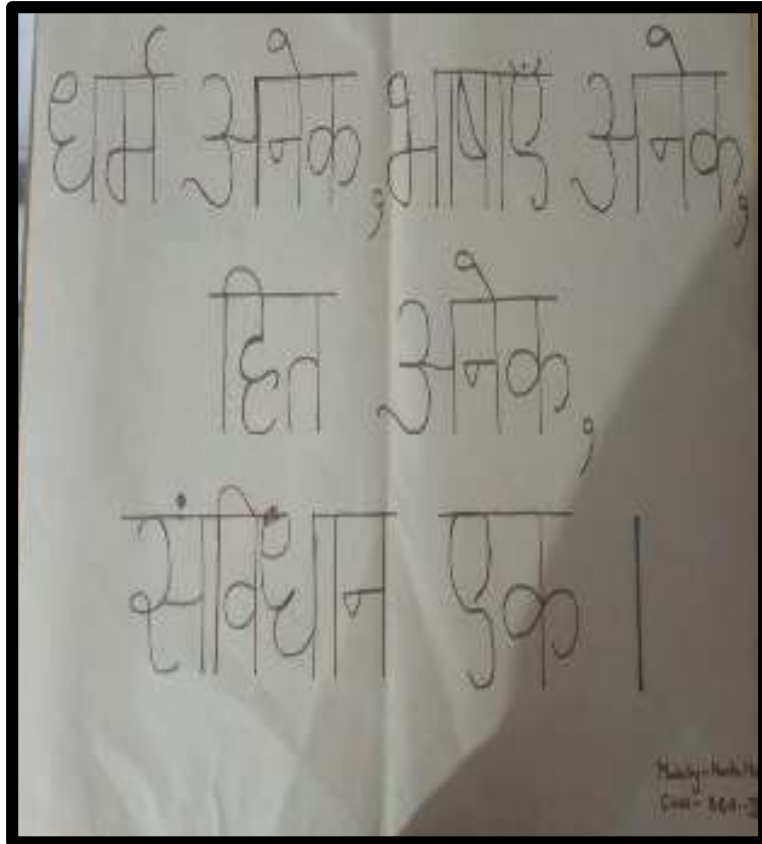 धर्म अनेक, भाषाएँ अनेक,
हित अनेक,
संविधान एक ।
Made by -
Class -